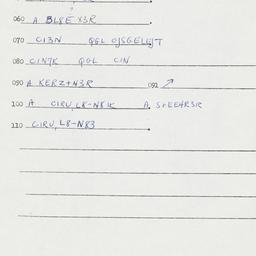 060 A BL8E X3R
070 CI3N QGL OJSGELIJT
080 CIN7K QGL CIN
090 A KERZ+N3R 092
100 A CIRU, L8-N81K A. S+EEHR3R
110 CIRU, L8-N83